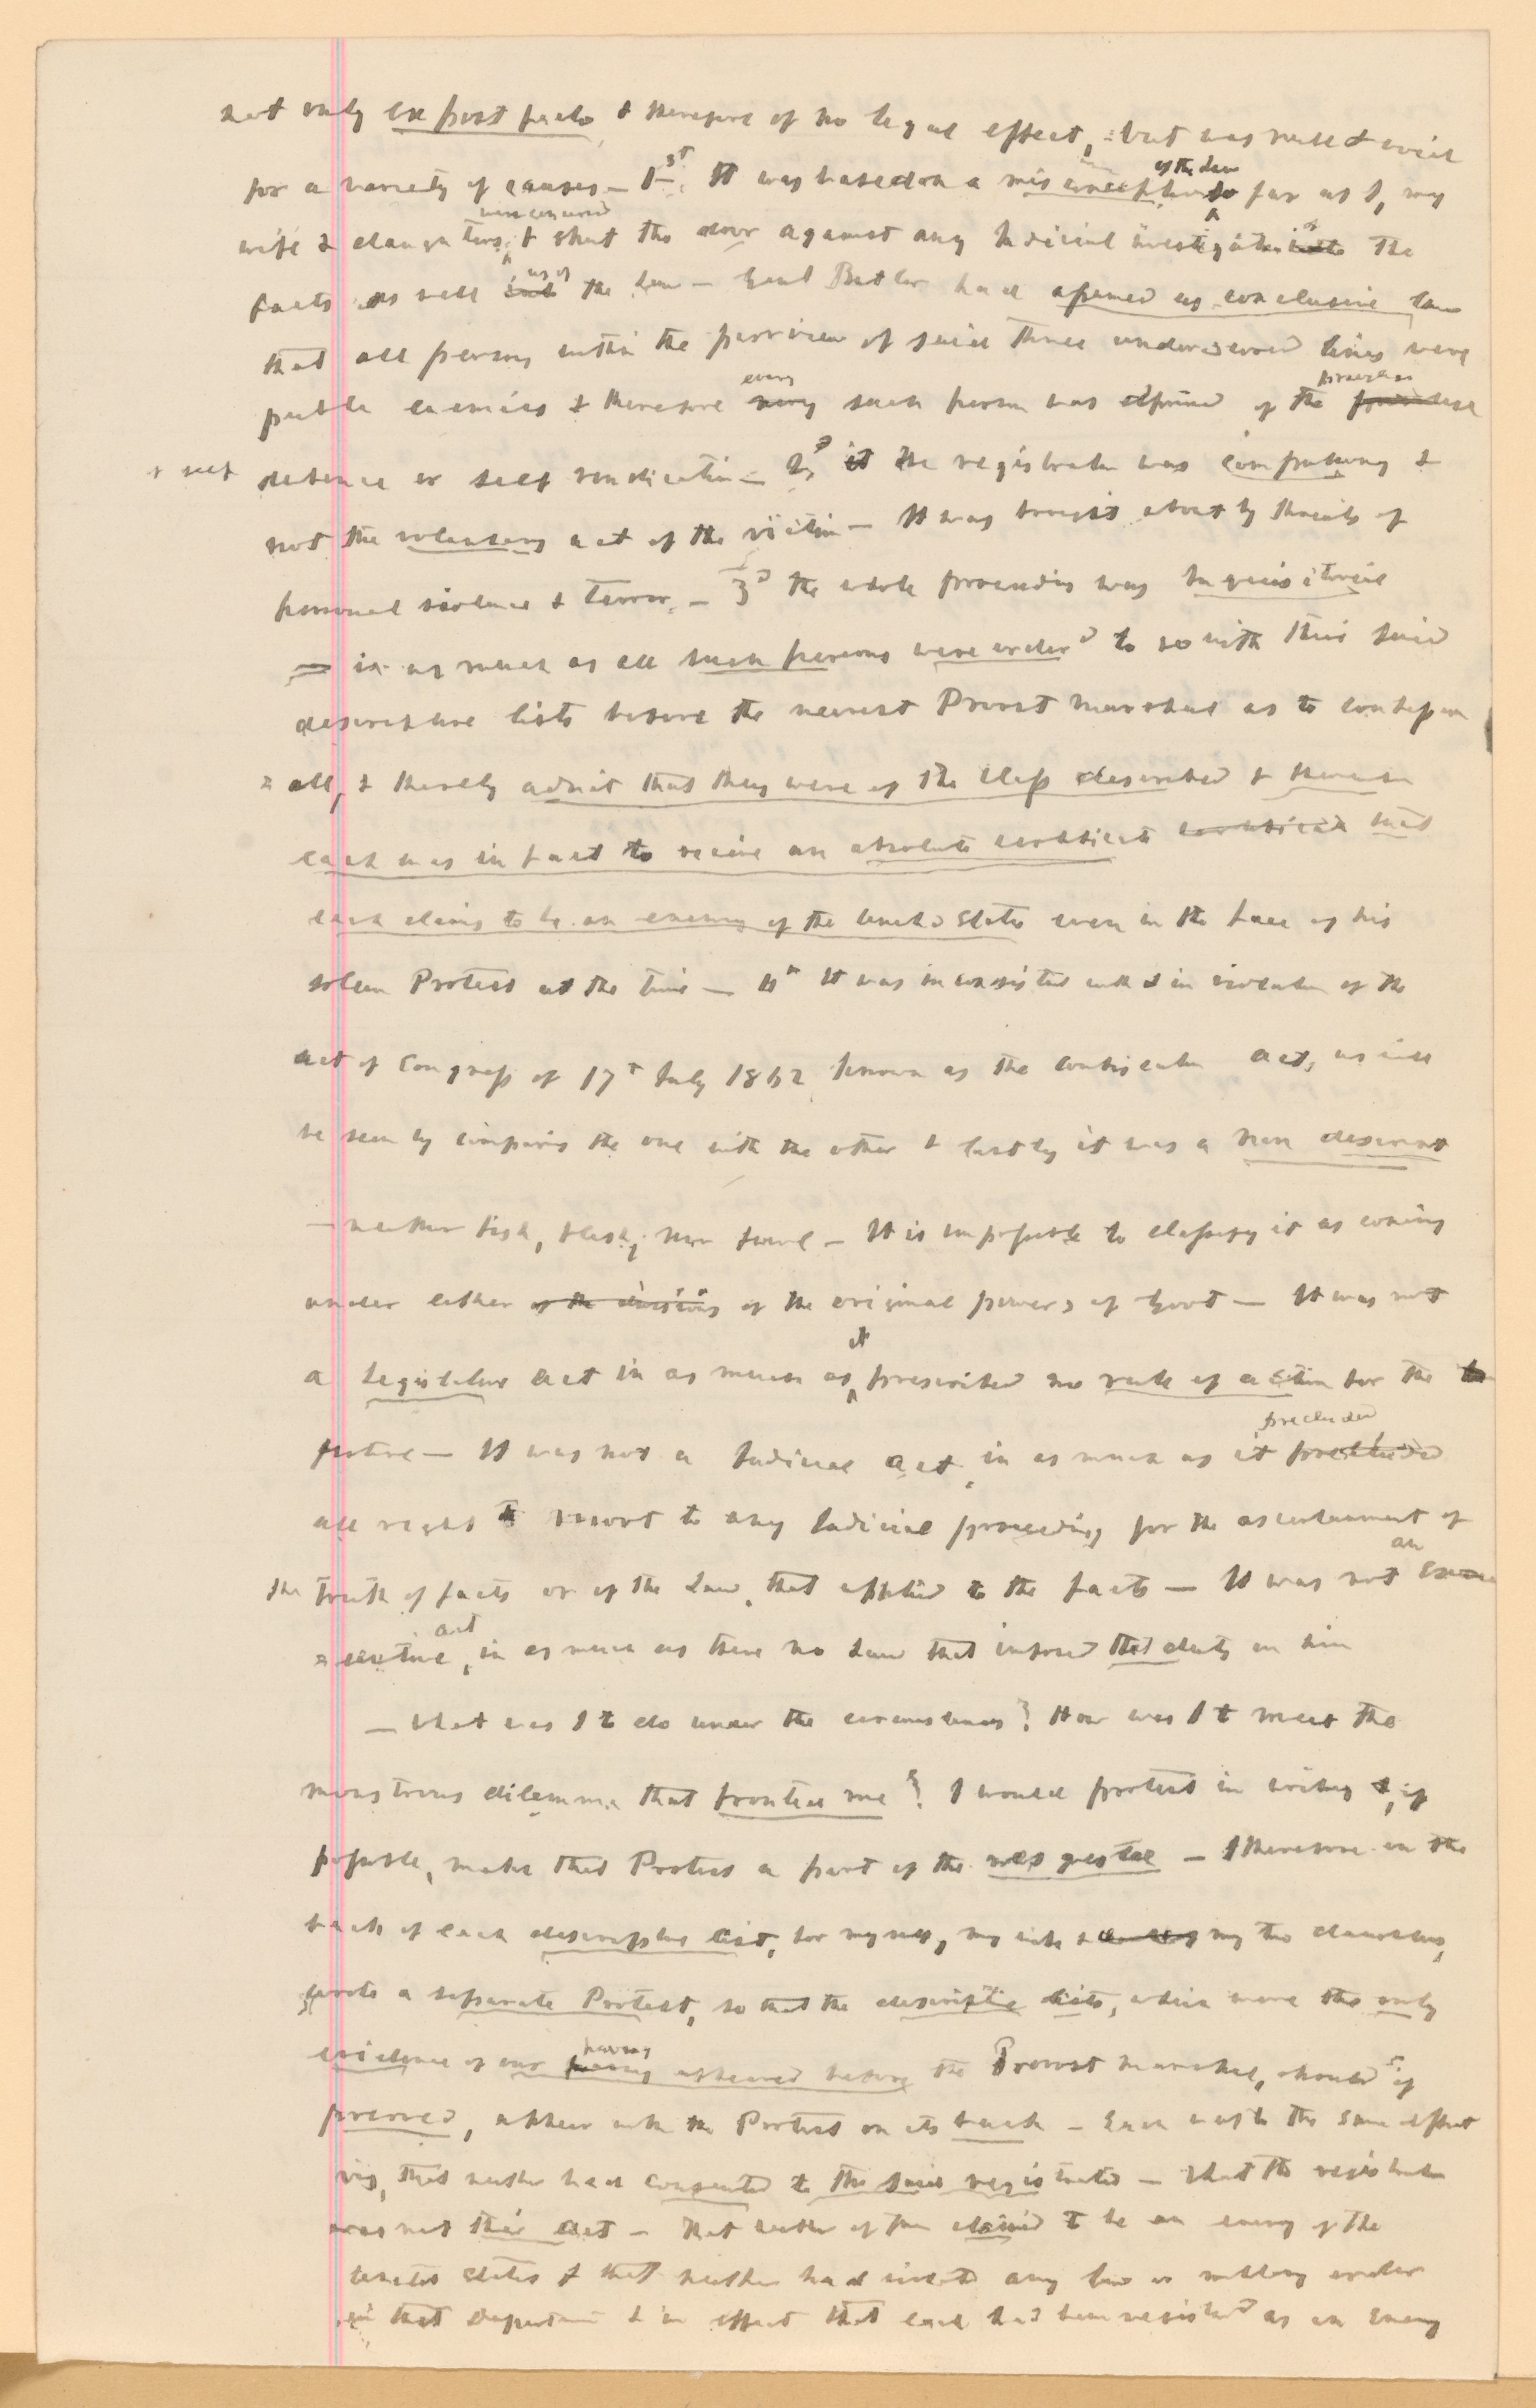 not only ex post facto & therefore of no legal effect, but was null & void
for a variety of causes — 1st. It was based on a misconception of the law so far as I, my
wife & daughters were concerned, & shut the door against any Judicial investigation of the
facts as well as of the Law — Genl Butler had assumed as conclusive law
that all persons within the purview of said three underscored lines were
public enemies & therefore every such person was deprived of the
defence or self vindication — 2d the registration was compulsory &
not the voluntary act of the victim — It was brought about by threats of
personal violence & terror — 3d the whole proceeding was Inquisitorial
in as much as all such persons were ordered to go with their said
descriptive lists before the nearest Provost Marshal as to
all, & thereby admit that they were of the class described &
each was in fact to receive an absolute certificate that
each claims to be an enemy of the United States even in the face of his
solemn Protest at the time — 4th It was inconsistent with & in violation of the
act of Congress of 17th July 1862 known as the confiscation act, as will
be seen by comparing the one with the other & lastly it was a non descript
— neither fish, flesh, nor fowl — It is impossible to classify it as coming
under either of the divisions of the original powers of Govt — It was not
a Legislative act in as much as it prescribed no rule of action for the
future — It was not a Judicial act, in as much as it precluded
all right to resort to any Judicial proceeding for the ascertainment of
the truth of facts or of the Law that applied to the facts — It was not an
executive act, in as much as there no Law that imposed that duty on him
— What was I to do under the circumstances? How was I to meet the
monstrous dilemma that fronted me? I would protest in writing &, if
possible, make that Protest a part of the res gestae — I therefore on the
back of each descriptive list, for myself, my wife & my two daughters,
wrote a separate Protest, so that the descriptive lists, which were the only
evidence of our having appeared before the Provost Marshal, should if
preserved, appear with the Protest on its back — Each was to the same effect
viz, that neither had consented to the said registration — that the registration
was not their act — that neither of them claimed to be an enemy of the
United States & that neither had violated any law or military order
in that Department & in effect that each had been registered as an Enemy